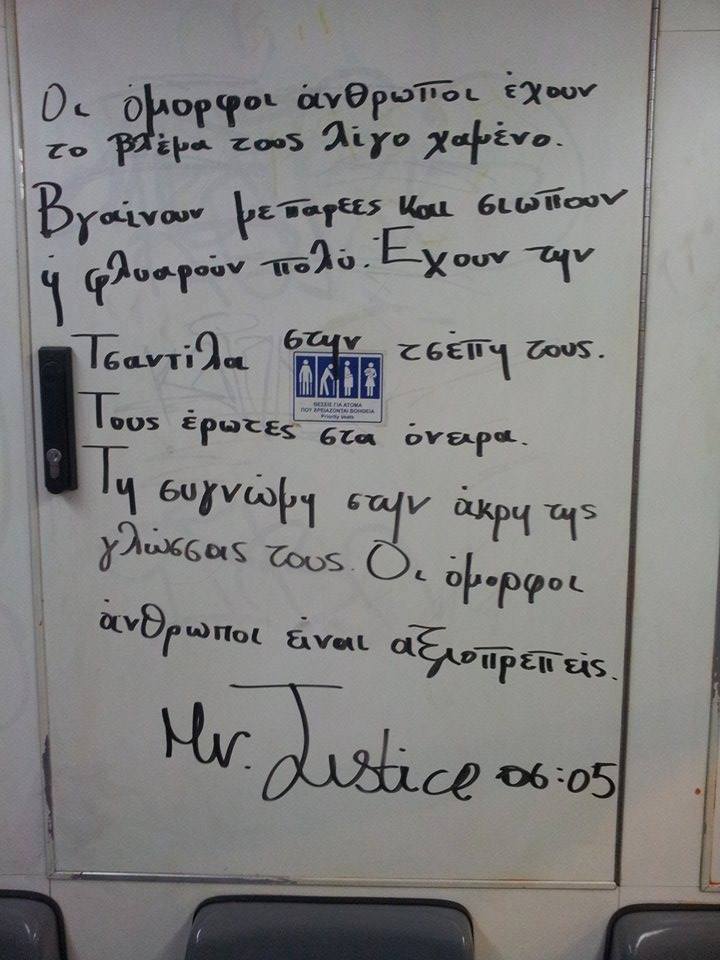 Οι όμορφοι άνθρωποι έχουν
το βλέμα τους λίγο χαμένο.
Βγαίνουν με παρέες και σιωπούν
ή φλυαρούν πολύ. Έχουν την
Τσαντίλα στην τσέπη τους.
ΘΕΣΕΙΣ ΓΙΑ ΑΤΟΜΑ
ΠΟΥ ΧΡΕΙΑΖΟΝΤΑΙ ΒΟΗΘΕΙΑ
Priority seats
Τους έρωτες στα όνειρα.
Τη συγνώμη στην άκρη της
γλώσσας τους. Οι όμορφοι
άνθρωποι είναι αξιοπρεπείς.
Mr. Justice 06:05